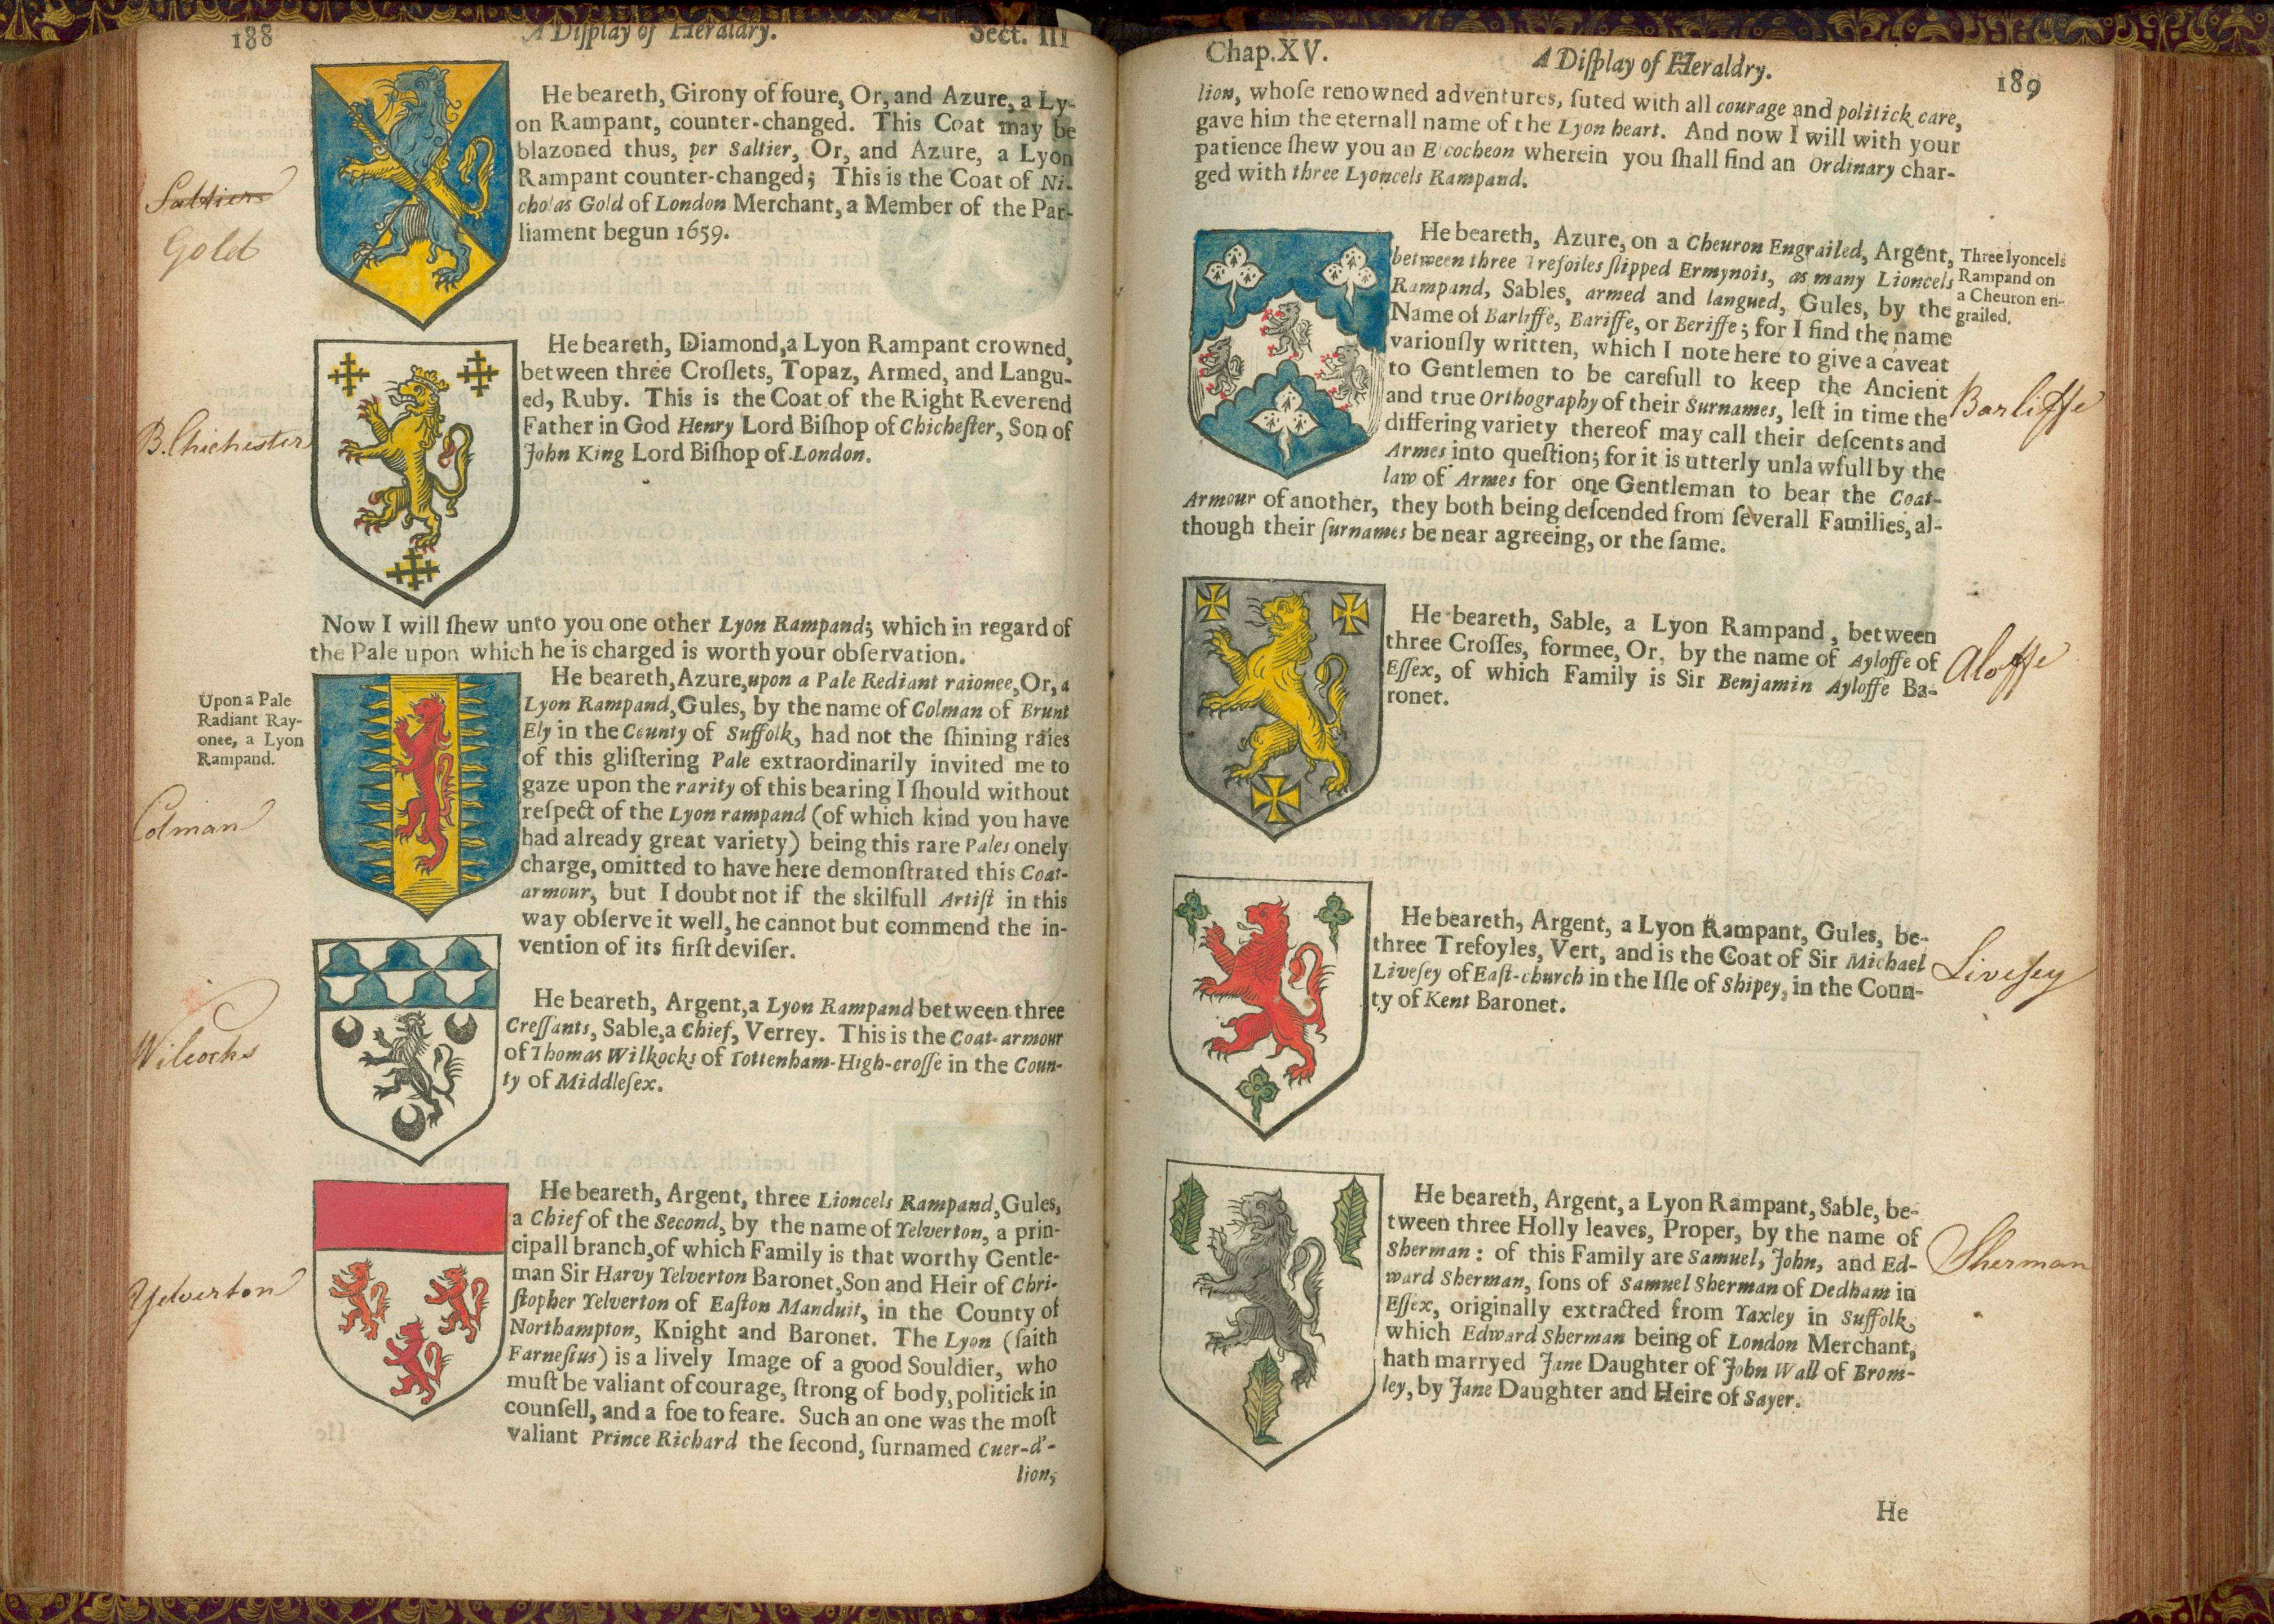 188 A Diſplay of Heraldry. Sect. III
He beareth, Girony of foure, Or, and Azure, a Ly-
on Rampant, counter-changed. This Coat may be
blazoned thus, per Saltier, Or, and Azure, a Lyon
Rampant counter-changed; This is the Coat of Ni-
cholas Gold of London Merchant, a Member of the Par-
liament begun 1659.
Saltier
Gold
He beareth, Diamond, a Lyon Rampant crowned,
between three Croſlets, Topaz, Armed, and Langu-
ed, Ruby. This is the Coat of the Right Reverend
Father in God Henry Lord Biſhop of Chicheſter, Son of
John King Lord Biſhop of London.
B. Chichester
Now I will ſhew unto you one other Lyon Rampand; which in regard of
the Pale upon which he is charged is worth your obſervation.
He beareth, Azure, upon a Pale Rediant raionee, Or, a
Lyon Rampand, Gules, by the name of Colman of Brunt
Ely in the County of Suffolk, had not the ſhining raies
of this gliſtering Pale extraordinarily invited me to
gaze upon the rarity of this bearing I ſhould without
reſpect of the Lyon rampand (of which kind you have
had already great variety) being this rare Pales onely
charge, omitted to have here demonſtrated this Coat-
armour, but I doubt not if the skilfull Artiſt in this
way obſerve it well, he cannot but commend the in-
vention of its firſt deviſer.
Upon a Pale
Radiant Ray-
onee, a Lyon
Rampand.
Colman
He beareth, Argent, a Lyon Rampand between three
Creſſants, Sable, a Chief, Verrey. This is the Coat-armour
of Thomas Wilkocks of Tottenham-High-croſſe in the Coun-
ty of Middleſex.
Wilcocks
He beareth, Argent, three Lioncels Rampand, Gules,
a Chief of the Second, by the name of Yelverton, a prin-
cipall branch, of which Family is that worthy Gentle-
man Sir Harvy Yelverton Baronet, Son and Heir of Chri-
ſtopher Yelverton of Eaſton Manduit, in the County of
Northampton, Knight and Baronet. The Lyon (ſaith
Farneſius) is a lively Image of a good Souldier, who
muſt be valiant of courage, ſtrong of body, politick in
counſell, and a foe to feare. Such an one was the moſt
valiant Prince Richard the ſecond, ſurnamed Cuer-d'-
lion,
Yelverton
Chap. XV. A Diſplay of Heraldry. 189
lion, whoſe renowned adventures, ſuted with all courage and politick care,
gave him the eternall name of the Lyon heart. And now I will with your
patience ſhew you an E cocheon wherein you ſhall find an Ordinary char-
ged with three Lyoncels Rampand.
He beareth, Azure, on a Cheuron Engrailed, Argent,
between three Trefoiles ſlipped Ermynois, as many Lioncels
Rampand, Sables, armed and langued, Gules, by the
Name of Barliffe, Bariffe, or Beriffe; for I find the name
variouſly written, which I note here to give a caveat
to Gentlemen to be carefull to keep the Ancient
and true Orthography of their Surnames, leſt in time the
differing variety thereof may call their deſcents and
Armes into queſtion; for it is utterly unlawfull by the
law of Armes for one Gentleman to bear the Coat-
Armour of another, they both being deſcended from ſeverall Families, al-
though their ſurnames be near agreeing, or the ſame.
Three lyoncels
Rampand on
a Cheuron en-
grailed.
Barliffe
He beareth, Sable, a Lyon Rampand, between
three Croſſes, formee, Or, by the name of Ayloffe of
Eſſex, of which Family is Sir Benjamin Ayloffe Ba-
ronet.
Aloffe
He beareth, Argent, a Lyon Rampant, Gules, be-
three Trefoyles, Vert, and is the Coat of Sir Michael
Liveſey of Eaſt-church in the Iſle of Shipey, in the Coun-
ty of Kent Baronet.
Liveſey
He beareth, Argent, a Lyon Rampant, Sable, be-
tween three Holly leaves, Proper, by the name of
Sherman: of this Family are Samuel, John, and Ed-
ward Sherman, ſons of Samuel Sherman of Dedham in
Eſſex, originally extracted from Yaxley in Suffolk,
which Edward Sherman being of London Merchant,
hath marryed Jane Daughter of John Wall of Brom-
ley, by Jane Daughter and Heire of Sayer.
Sherman
He